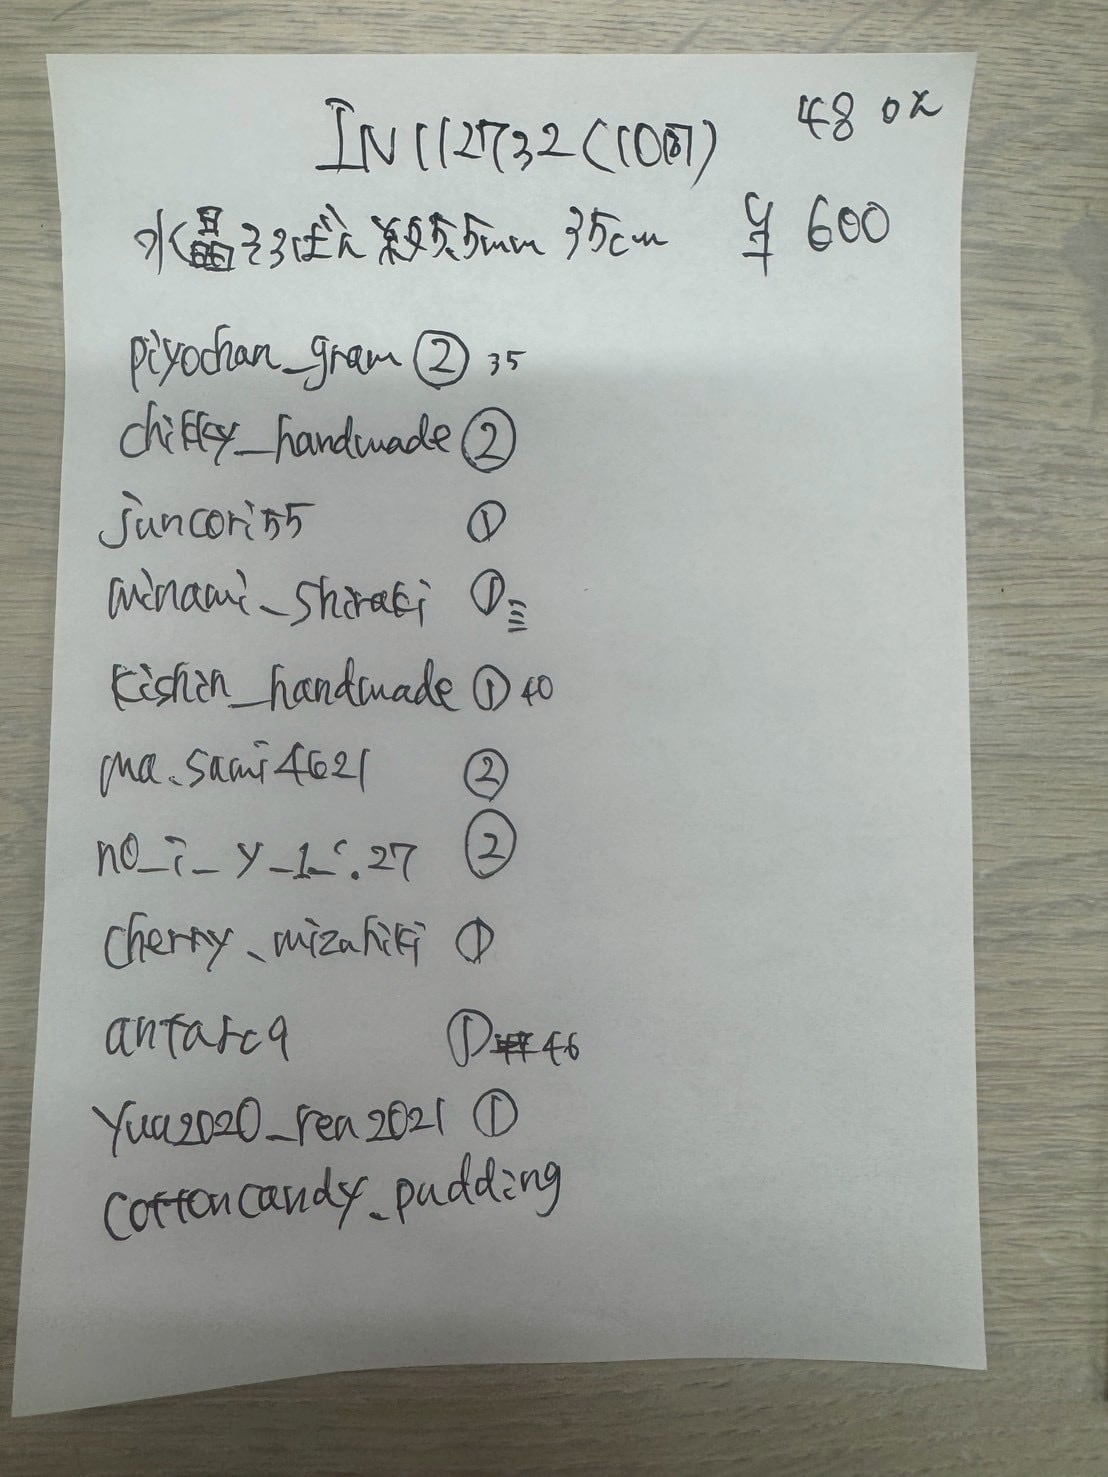 IN112732(10時) 48 0え
水晶そろばん 約5.5mm 35cm ¥600
piyochan_gram ② 35
chikky_handmade ②
juncori55 ①
minami_shiraki ①
kishin_handmade ① 40
ma.sami4621 ②
no_i_y_1_ .27 ②
cherry_mizuhiki ①
antarc9 ① 46
yua2020_rea2021 ①
cottoncandy_pudding